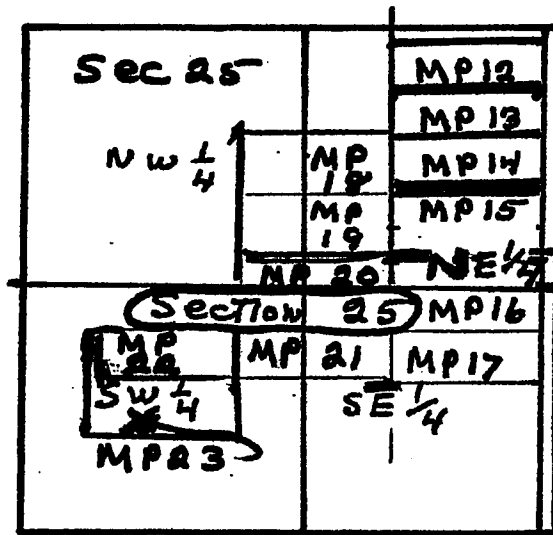 Sec 25
MP12
MP13
NW 1/4
MP
18
MP14
MP
19
MP15
MP 20
NE 1/4
Section 25
MP16
MP
22
MP 21
MP17
SW 1/4
SE 1/4
MP23